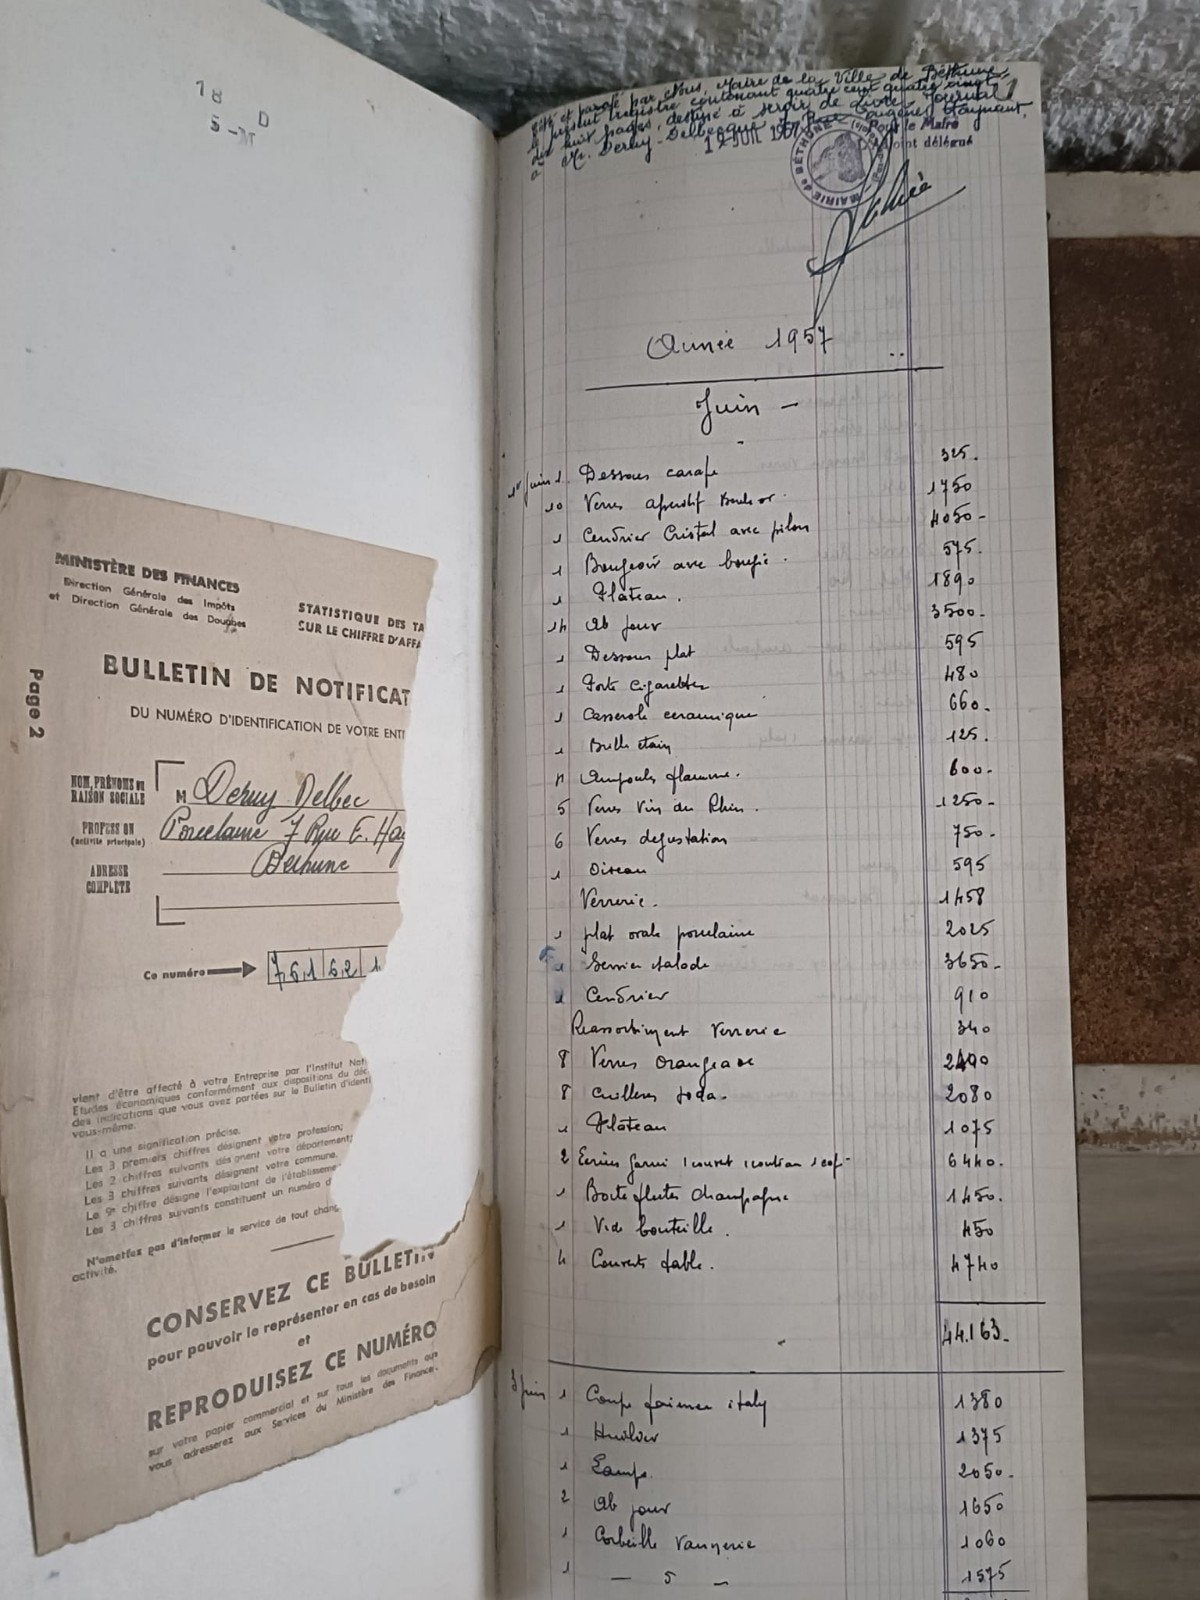 18 D
5 - M
MINISTÈRE DES FINANCES
Direction Générale des Impôts
et Direction Générale des Douanes
STATISTIQUE DES TA
SUR LE CHIFFRE D'AFFA
Page 2
BULLETIN DE NOTIFICAT
DU NUMÉRO D'IDENTIFICATION DE VOTRE ENTI
NOM, PRÉNOMS ou
RAISON SOCIALE
M Deruy Delbec
PROFESSION
(activité principale)
Porcelaine 7 Rue E. Hay
ADRESSE
COMPLÈTE
Béthune
Ce numéro
7 6 1 6 2 1
vient d'être affecté à votre Entreprise par l'Institut Nat
Etudes économiques conformément aux dispositions du déc
des indications que vous avez portées sur le Bulletin d'identi
vous-même.
Il a une signification précise.
Les 3 premiers chiffres désignent votre profession;
Les 2 chiffres suivants désignent votre département;
Les 3 chiffres suivants désignent votre commune.
Le 9e chiffre désigne l'exploitant de l'établisseme
Les 3 chiffres suivants constituent un numéro d
N'omettez pas d'informer le service de tout chang
activité.
CONSERVEZ CE BULLETIN
pour pouvoir le représenter en cas de besoin
et
REPRODUISEZ CE NUMÉRO
sur votre papier commercial et sur tous les documents que
vous adresserez aux Services du Ministère des Finances.
Coté et parafé par Nous, Maire de la Ville de Béthune,
le présent registre contenant quatre cent quatre vingt
dix huit pages, destiné à servir de Livre Journal
à Mr. Deruy-Delbecque, 7 Rue Eugène Haynaut,
1
JUN 1957
MAIRIE de BÉTHUNE
Pour le Maire
Adjoint délégué
Année 1957
Juin -
1er juin 1 Dessous carafe 325.
10 Verres apéritif boule or. 1750
1 Cendrier Cristal avec pilon 4050-
1 Bougeoir avec bougie. 575.
1 Plateau. 1890
14 Ab jour 3500-
1 Dessous plat 595
1 Porte cigarettes 480
1 Casserole ceramique 660.
1 Brille étain 125.
Ampoules flamme. 600-
5 Verres vin du Rhin. 1250-
6 Verres degustation 750-
1 Oiseau 595
Verrerie. 1458
1 plat ovale porcelaine 2025
1 Service salade 3650-
1 Cendrier 910
Reassortiment verrerie 340
8 Verres orangeade 2490
8 Cuilleres soda. 2080
1 Plateau 1075
2 Ecrins garni 1 couvert 1 couteau 6440.
1 Boite flutes Champagne 1450.
1 Vide bouteille. 450
4 Couverts table. 4740
44.163-
3 juin 1 Coupe faience italy 1380
1 Huilier 1375
1 Lampe. 2050-
2 Ab jour 1650
1 Corbeille vannerie 1060
1 — 5 — 1575